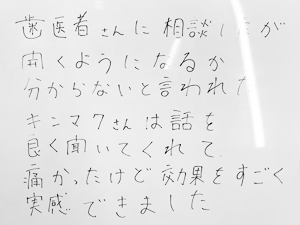 歯医者さんに相談したが
開くようになるか
分からないと言われた
キンマクさんは話を
良く聞いてくれて
痛かったけど効果をすごく
実感できました